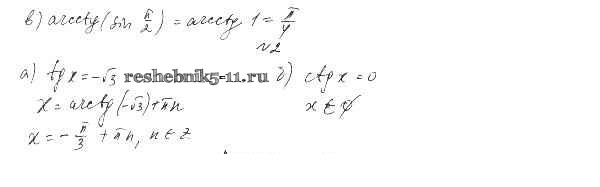 в) arcctg(sin π/2) = arcctg 1 = π/4
№2
а) tg x = -√3 reshebnik5-11.ru б) ctg x = 0
x = arctg(-√3) + πn x ∈ ∅
x = -π/3 + πn, n ∈ z